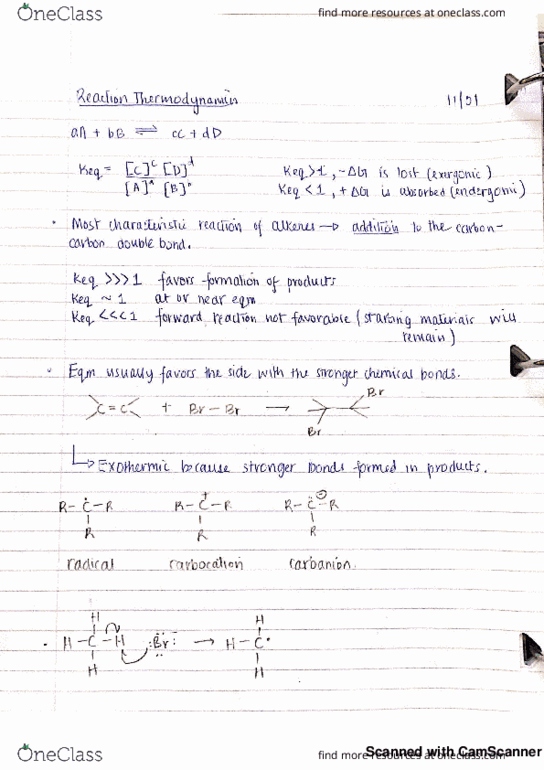 OneClass
find more resources at oneclass.com
Reaction Thermodynamics 11/01
aA + bB ⇌ cC + dD
Keq = [C]^c [D]^d / [A]^a [B]^b
Keq > 1, -ΔG is lost (exergonic)
Keq < 1, +ΔG is absorbed (endergonic)
• Most characteristic reaction of alkenes → addition to the carbon-
carbon double bond.
Keq >>> 1 favors formation of products
Keq ~ 1 at or near eqm
Keq <<< 1 forward reaction not favorable (starting materials will
remain)
• Eqm usually favors the side with the stronger chemical bonds.
Br
C=C + Br-Br →
Br
↳ Exothermic because stronger bonds formed in products.
R-Ċ-R R-C⁺-R R-C̈⊖-R
R R R
radical carbocation carbanion
H H
• H-C-H :Br:⁻ → H-C•
H H
Scanned with CamScanner
OneClass
find more resources at oneclass.com